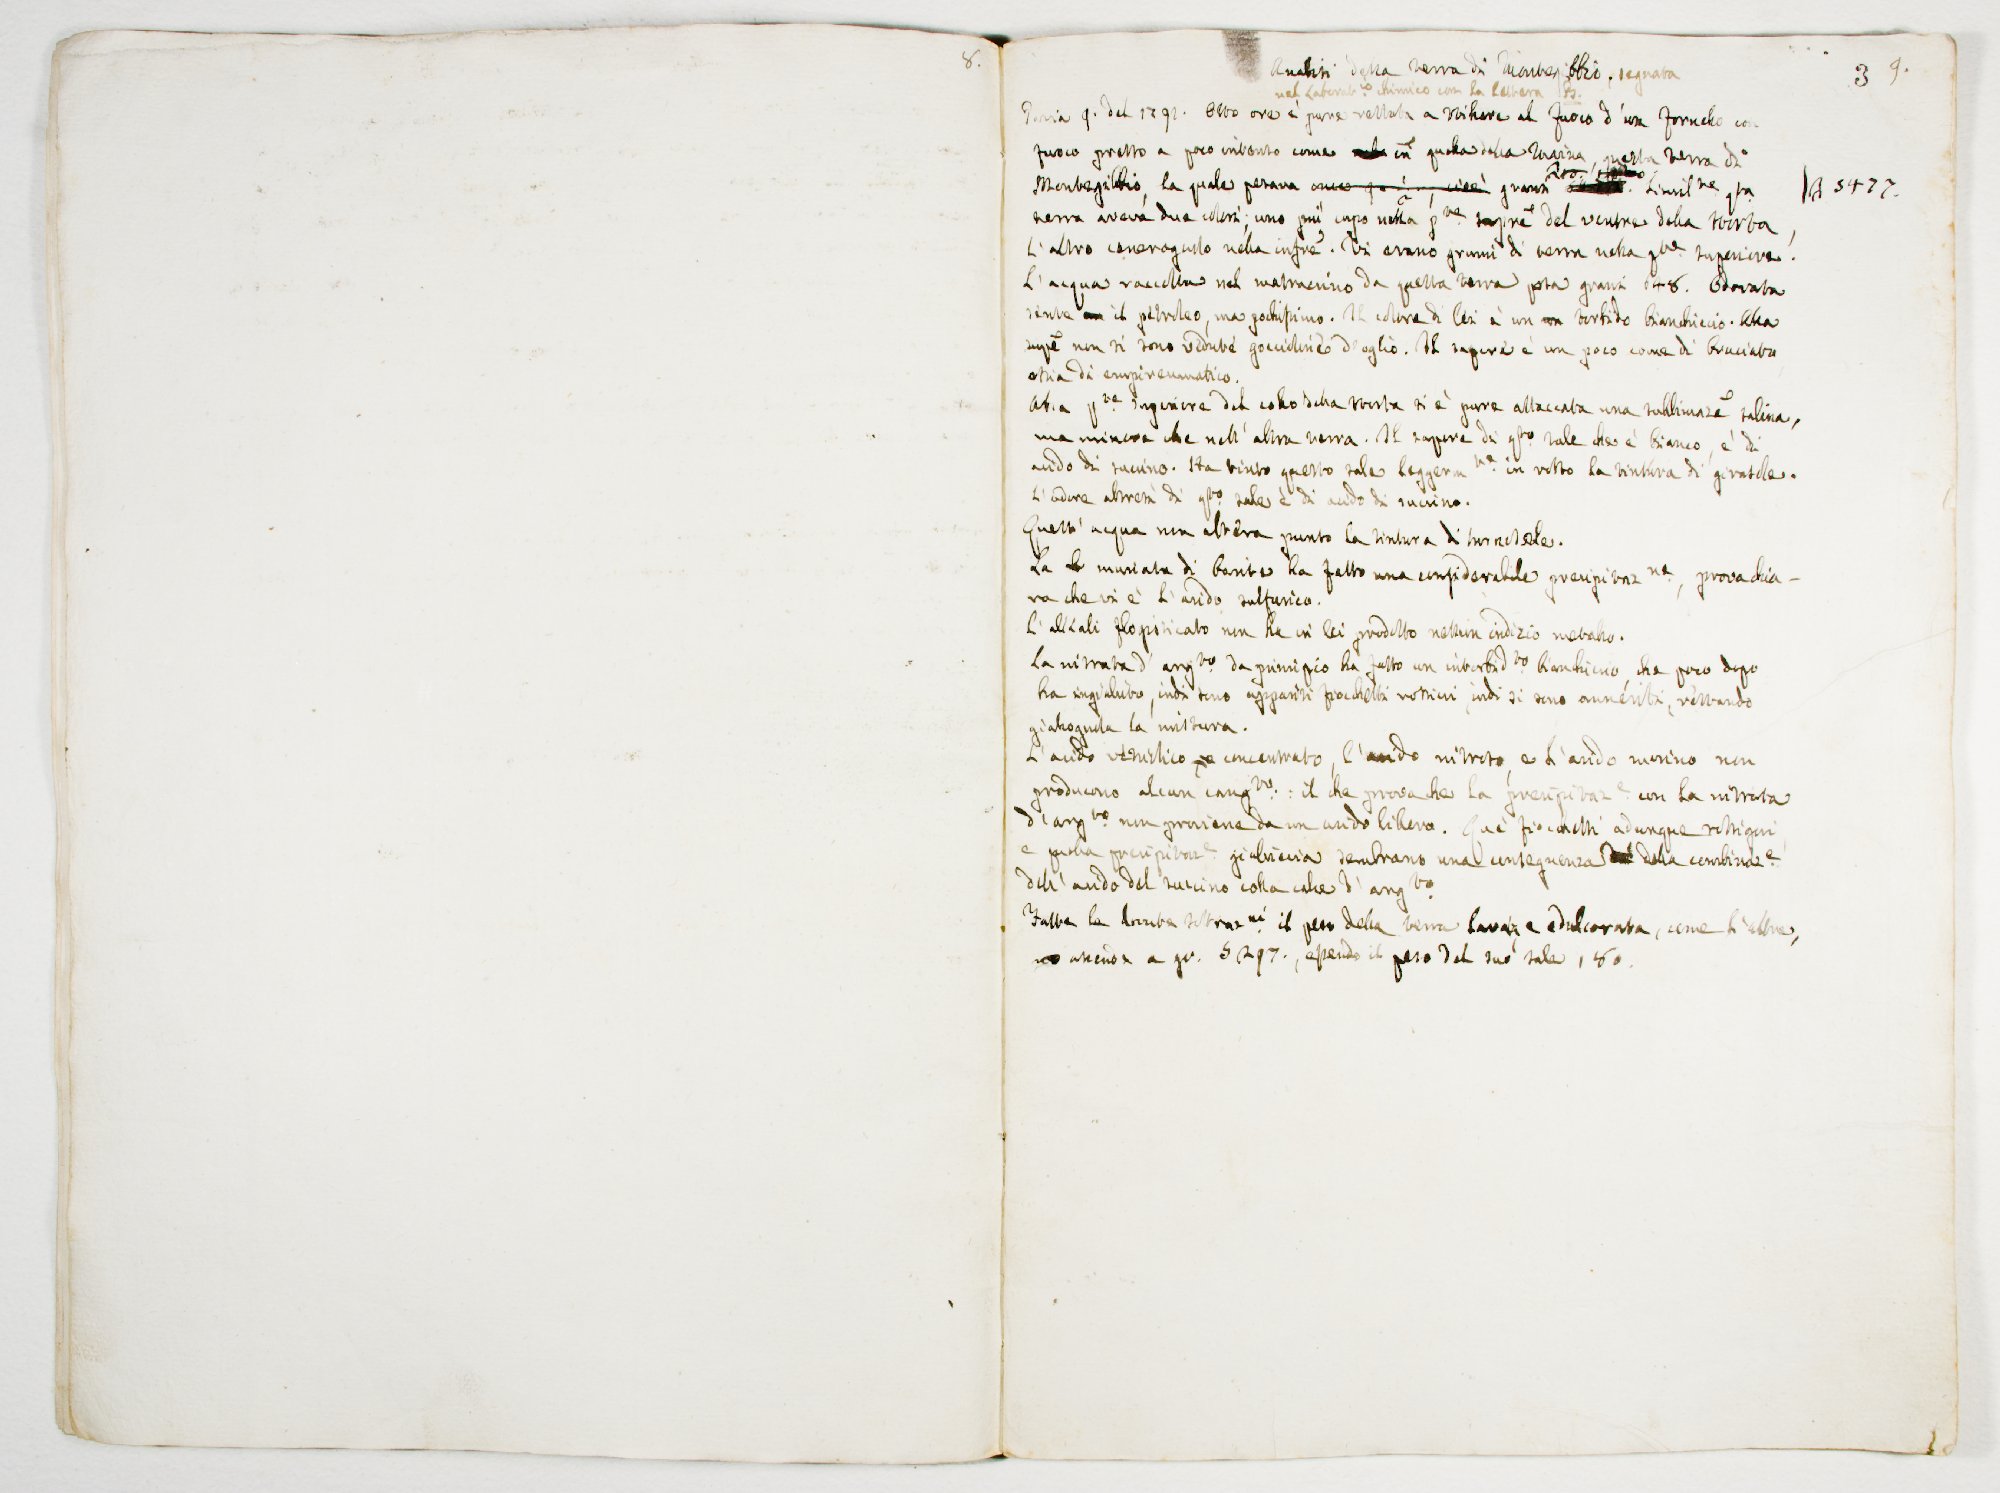 8.
3 9.
Analisi della terra di Montegibbio, segnata
nel Laborat.º chimico con la lettera B.
Pavia 9. del 1792. Otto ore è pure restata a storte al fuoco d'un fornello con
fuoco presso a poco intento come in quella della Maina, questa terra di
Montegibbio, la quale pesava once grani Simil.ne q.ta
A 5477.
terra aveva due colori; uno più cupo nella p.te sup.re del ventre della storta,
l'altro cenerognolo nella infre. Vi erano grumi di terra nella p.te superiore.
L'acqua raccolta nel matraccino da questa terra pesa grani 548. Odorata
sente il petroleo, ma pochissimo. Il colore di lei è un torbido bianchiccio. Alla
supe non si sono vedute gocciolette d'oglio. Il sapore è un poco come di bruciato
ossia di empireumatico.
Alla p.te superiore del collo della storta si è pure attaccata una sublimaze salina,
ma minore che nell'altra terra. Il sapore di q.to sale che è bianco, è di
acido di succino. Ha tinto questo sale leggerm.te in rosso la tintura di girasole.
L'odore altresì di q.to sale è di acido di succino.
Quest'acqua non altera punto la tintura di tornesole.
La muriata di barite ha fatto una considerabile precipitaz.ne, prova chia-
ra che vi è l'acido sulfurico.
L'alkali flogisticato non ha in lei prodotto nessun indizio metallo.
La nitrata d'arg.to da principio ha fatto un intorbid.to bianchiccio, che poco dopo
ha ingiallito, indi sono appariti fiocchetti rossicci, indi si sono anneriti, restando
giallognola la mistura.
L'acido vetriolico concentrato, l'acido nitroso, e l'acido marino non
producono alcun cang.to: il che prova che la precipitaz.e con la nitrata
d'arg.to non proviene da un acido libero. Que' fiocchetti adunque rossigni
e quella precipitaz.e gialliccia sembrano una conseguenza della combinaz.e
dell'acido del succino colla calce d'arg.to
Fatte le dovute sottraz.ni il peso della terra lavata e edulcorata, come l'altre,
ascende a gr. 5297., essendo il peso del suo sale 180.